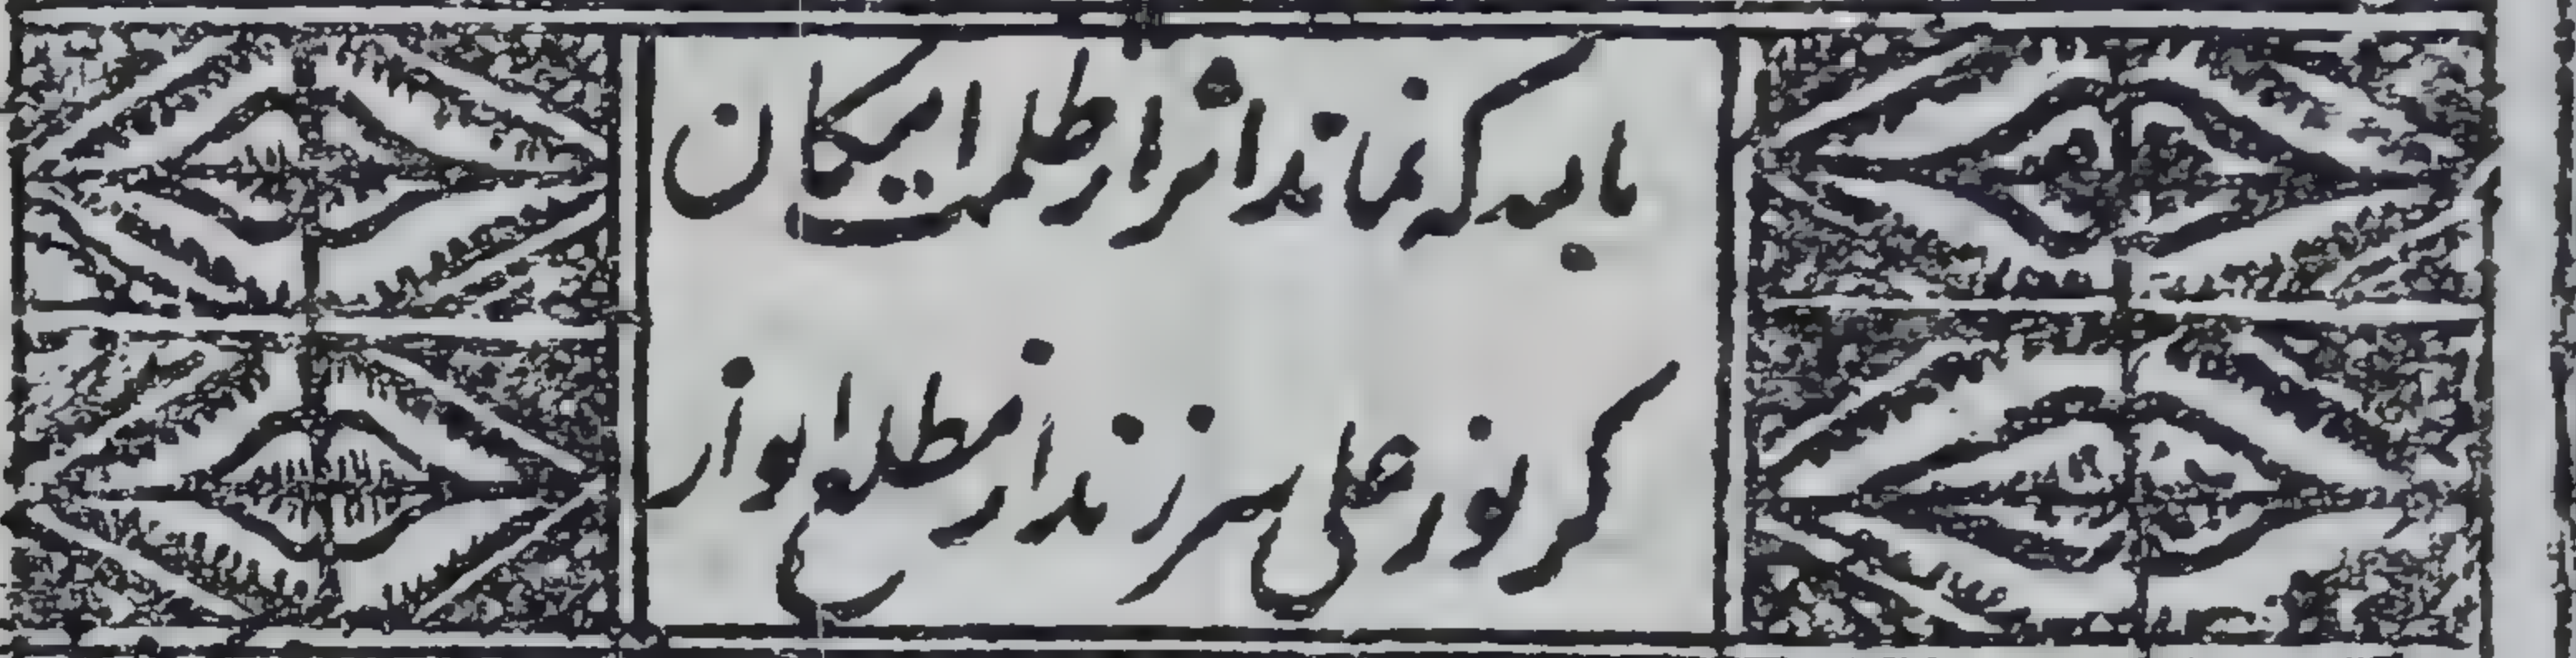 باید که نماند اثر از ظلمت امکان
کر نور علی سر زند از مطلع انوار